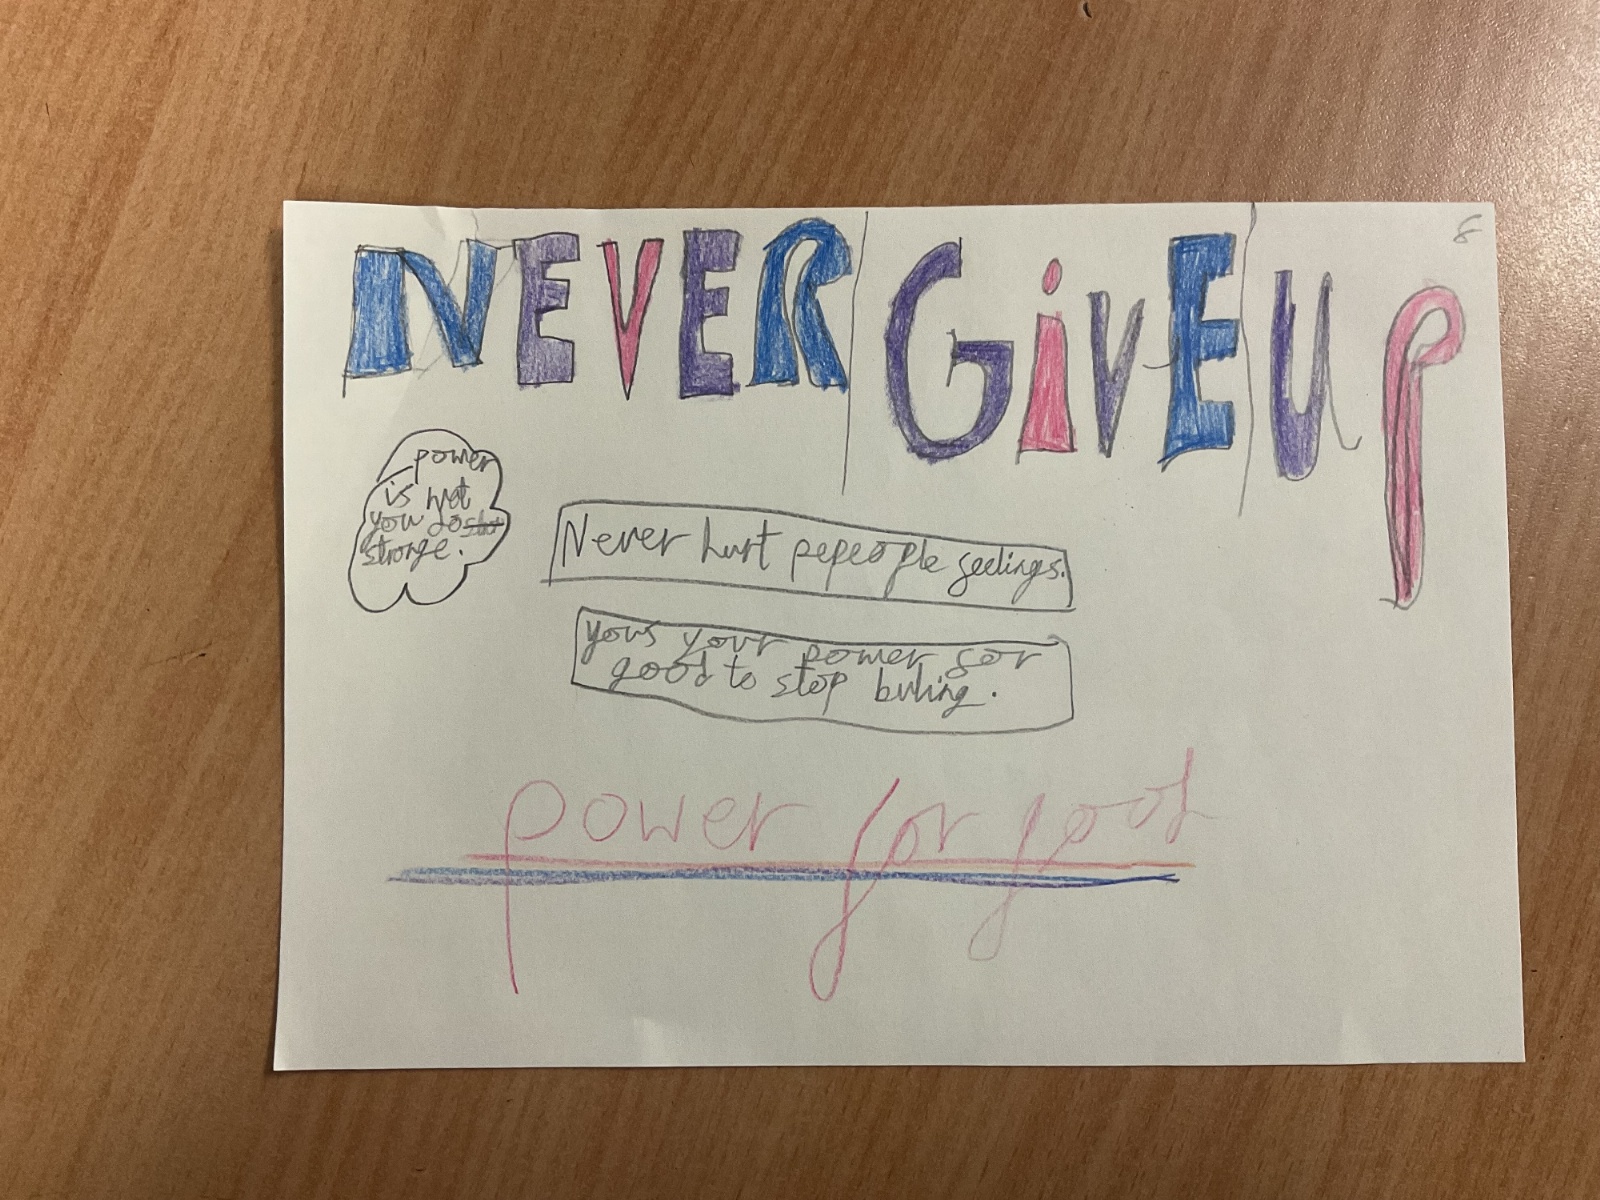 8
NEVER GiVE UP
power
is wot
you do
stronge.
Never hurt pepeople feelings.
yous your power for
good to stop buling.
power for good